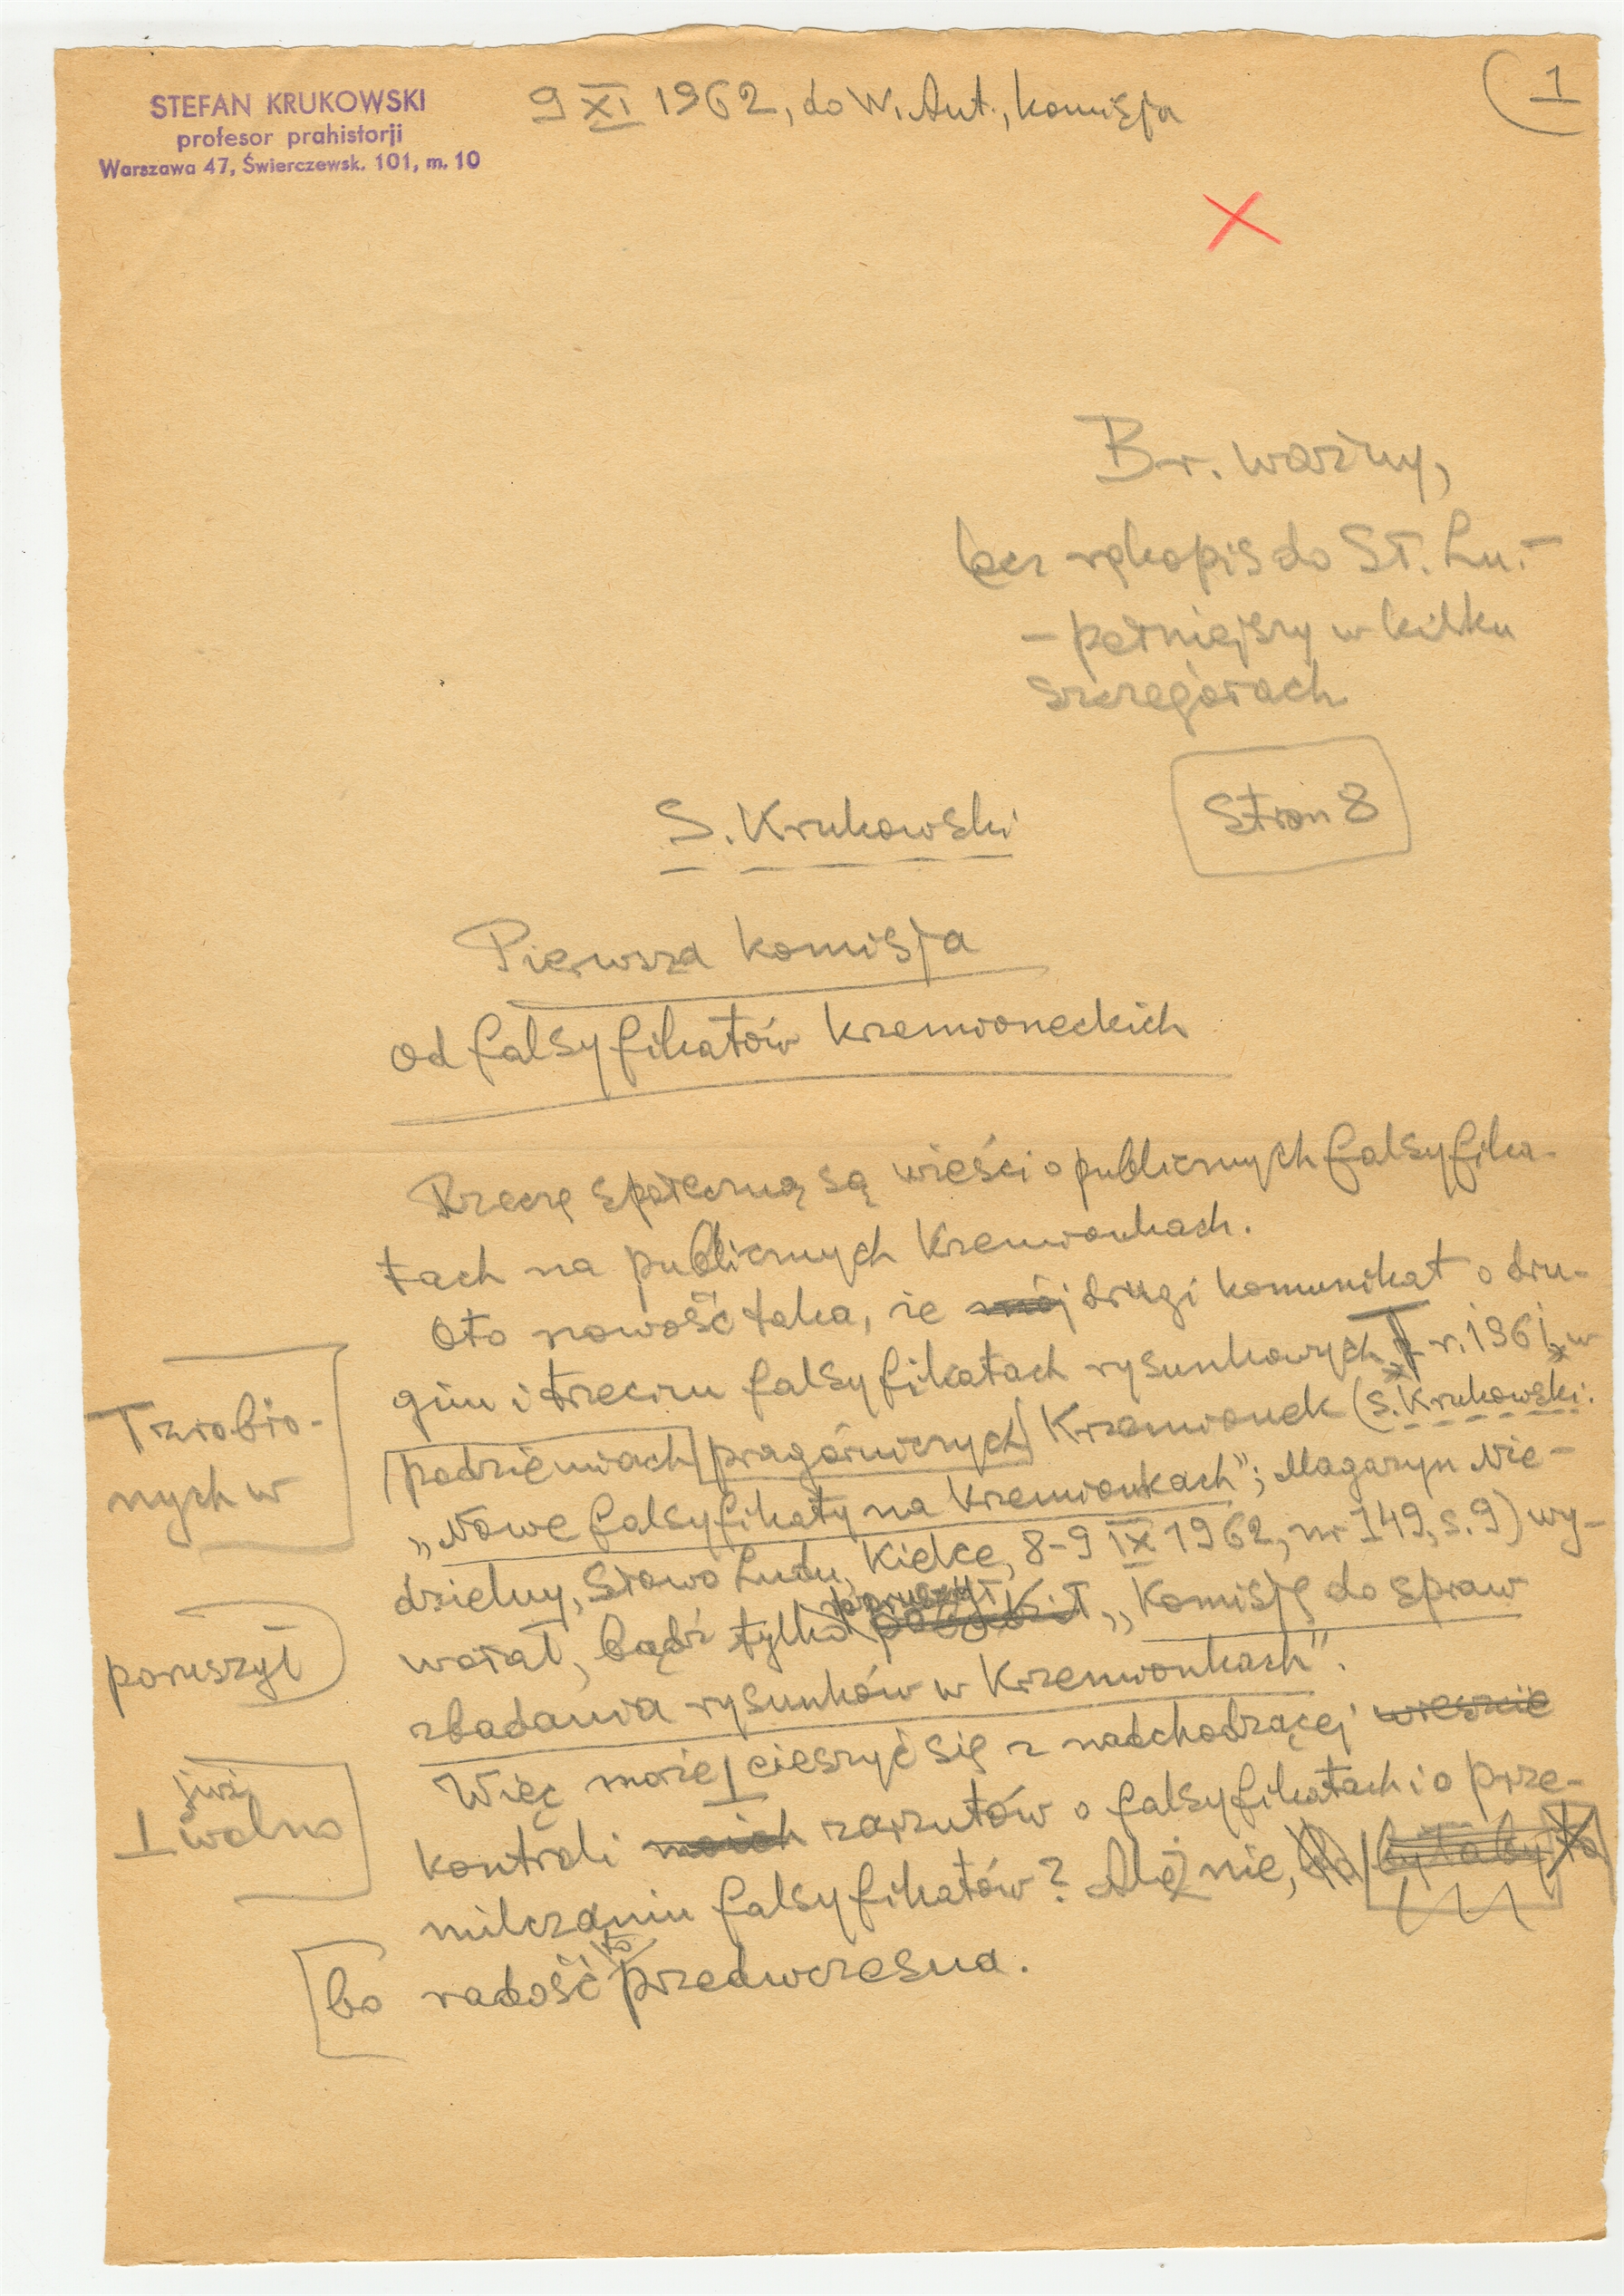 STEFAN KRUKOWSKI
profesor prahistorji
Warszawa 47, Świerczewsk. 101, m. 10
9 XI 1962, do W. Ant., komisja
1
Br. ważny,
lecz rękopis do Sł. Lu. –
– pełniejszy w kilku
szczegółach
Stron 8
S. Krukowski
Pierwsza komisja
od falsyfikatów krzemioneckich
Rzeczę społeczną są wieści o publicznych falsyfika-
tach na publicznych Krzemionkach.
Oto nowość taka, że mój drugi komunikat o dru-
gim i trzecim falsyfikatach rysunkowych r. 1961, w
Tzrobio-
nych w
podziemiach pragórniczych Krzemionek (S. Krukowski:
„Nowe falsyfikaty na Krzemionkach"; Magazyn Nie-
dzielny, Słowo Ludu, Kielce, 8–9 IX 1962, nr 149, s. 9) wy-
poruszył
wołał, bądź tylko poruszył „Komisję do spraw
zbadania rysunków w Krzemionkach".
Więc może I cieszyć się z nadchodzącej wieszcie
już
I wolno
kontroli moich zarzutów o falsyfikatach i o prze-
milczaniu falsyfikatów? Ależ nie, byłaby to
to
bo radość przedwczesna.